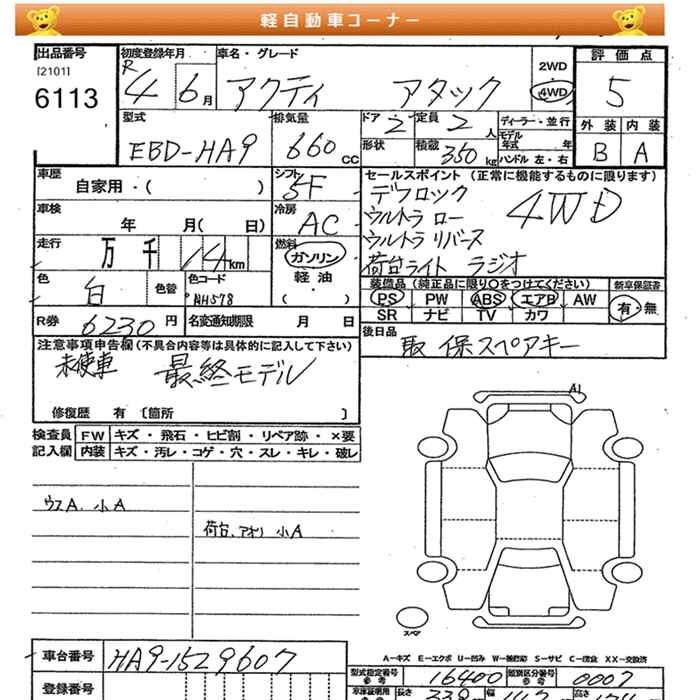 軽自動車コーナー
出品番号
[2101]
6113
初度登録年月
R 4 6 月
車名・グレード
アクティ アタック
2WD
4WD
評価点
5
外装 内装
B A
型式
EBD-HA9
排気量
660 cc
ドア 2
定員 2 人
形状
積載 350 kg
ディーラー・並行
モデル年式 年
ハンドル 左・右
車歴
自家用・( )
シフト 5F
車検
年 月( 日)
冷房 AC
セールスポイント(正常に機能するものに限ります)
デフロック 4WD
ウルトラ ロー
ウルトラ リバース
荷台ライト ラジオ
走行
万 千 14 km
燃料
ガソリン
軽油
( )
色 白
色替
色コード
NH578
装備品(純正品に限り○をつけてください)
PS PW ABS エアB AW
SR ナビ TV カワ
新車保証書
有・無
R券 6230 円
名変通知期限 月 日
後日品
取 保 スペアキー
注意事項申告欄(不具合内容等は具体的に記入して下さい)
未使車 最終モデル
修復歴 有〔箇所 〕
検査員記入欄
FW キズ・飛石・ヒビ割・リペア跡・×要
内装 キズ・汚レ・コゲ・穴・スレ・キレ・破レ
A1
ウスA、小A
荷台、アオリ 小A
スペア
A-キズ E-エクボ U-凹み W-補修跡 S-サビ C-腐食 XX-交換済
車台番号 HA9-1529607
登録番号
型式指定番号 16400
類別区分番号 0007
長さ 339
幅
高さ